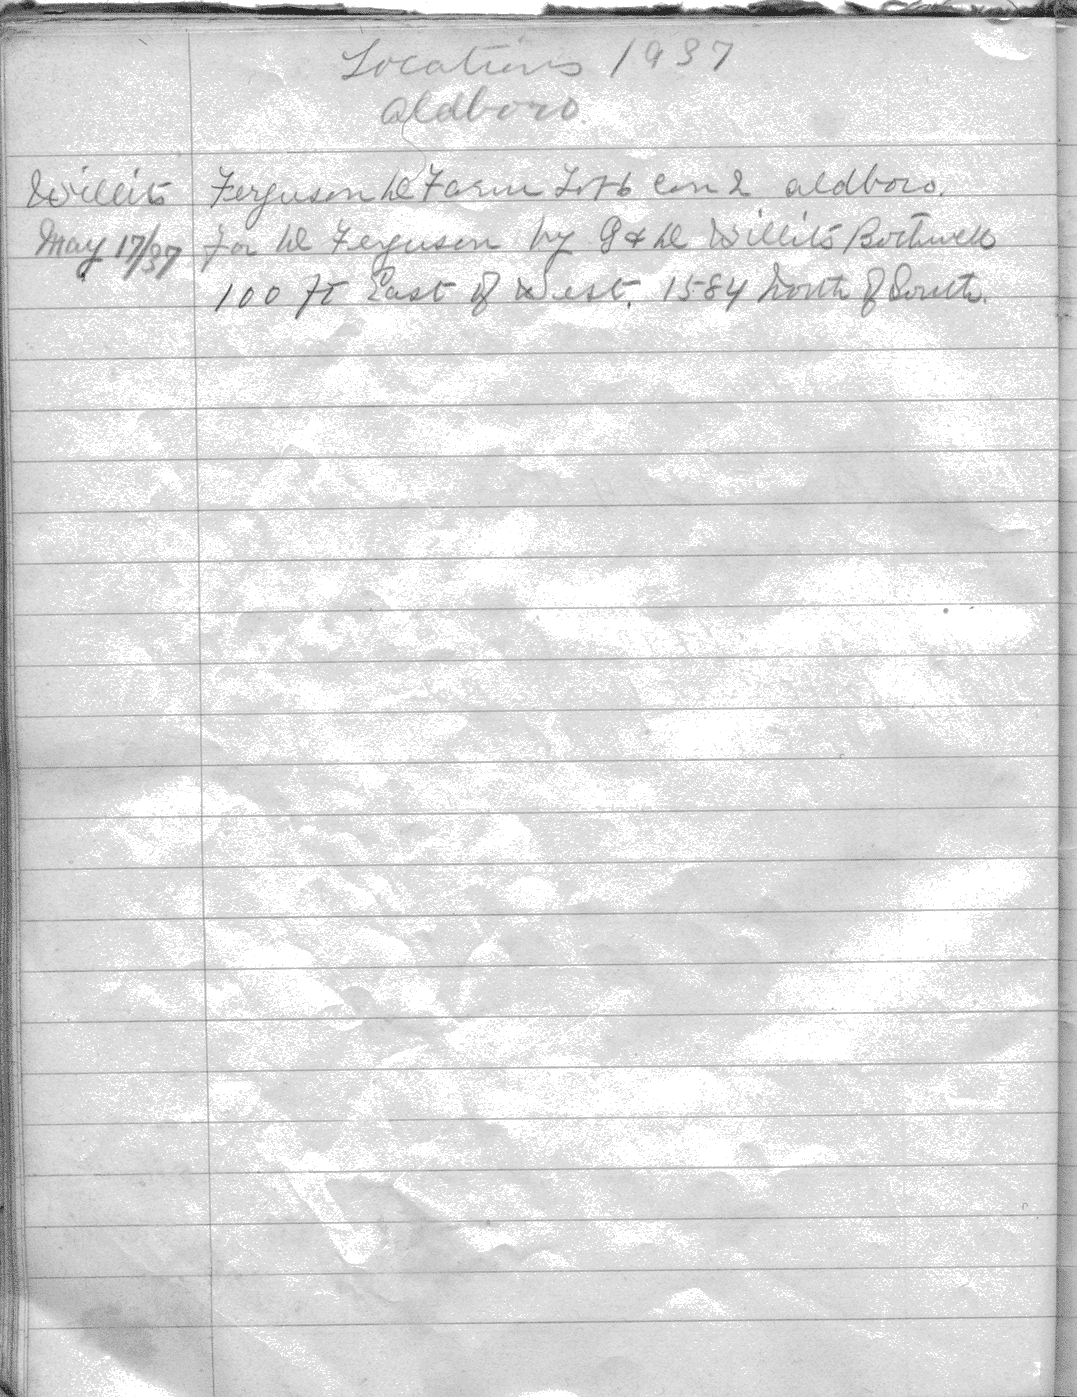 Locations 1937
Aldboro.
Willits Ferguson W Farm Lot 6 Con 2 Aldboro.
May 17/37 for W Ferguson by G & W Willits Bothwell
100 ft East of West. 1584 North of South.